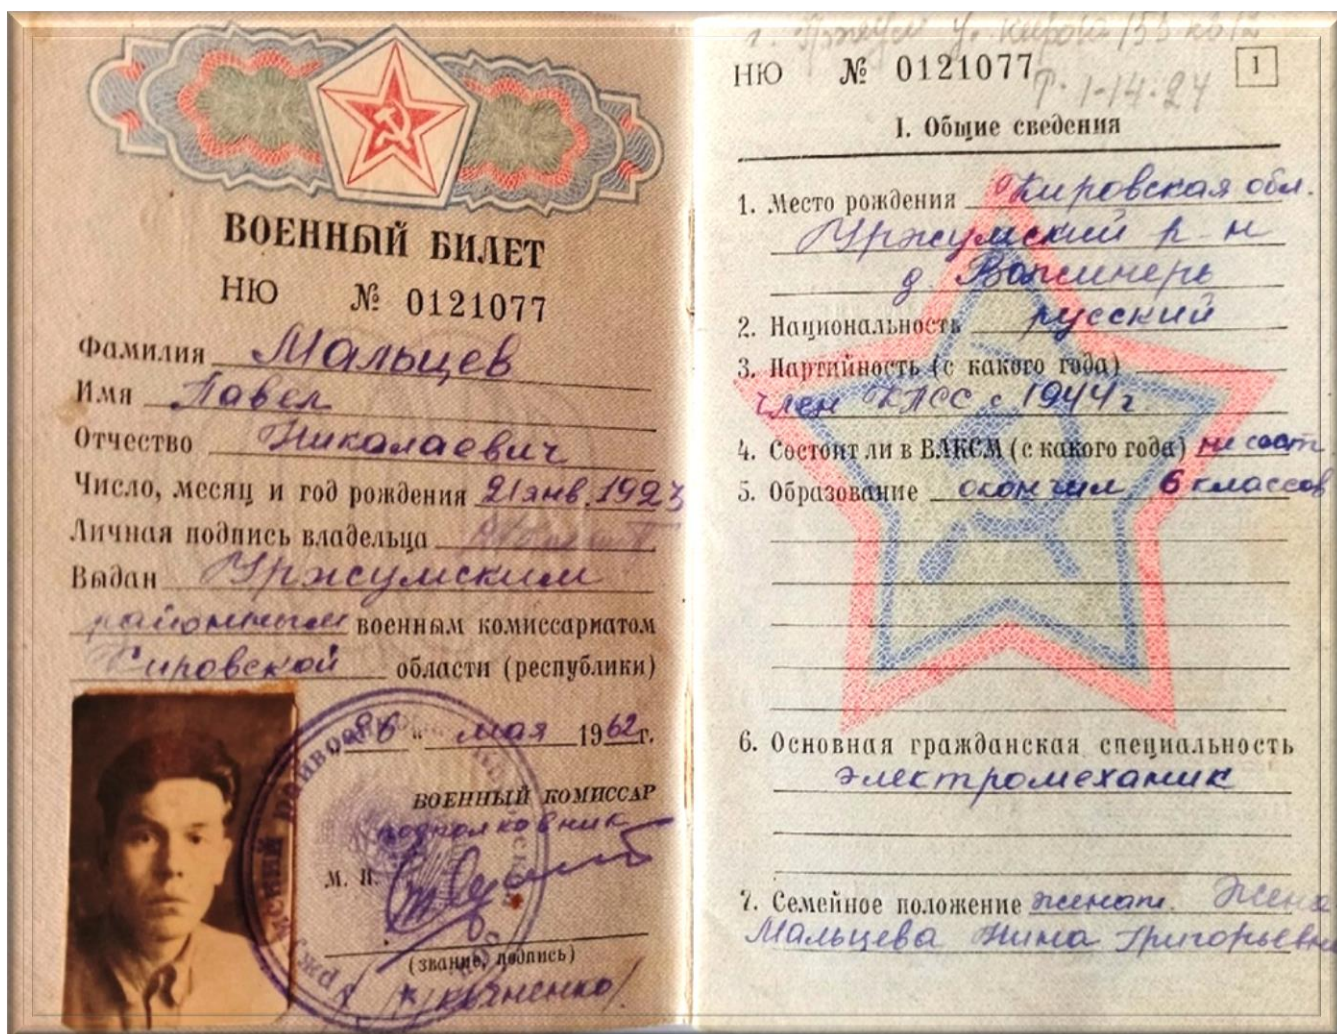 ВОЕННЫЙ БИЛЕТ
НЮ № 0121077
Фамилия Мальцев
Имя Павел
Отчество Николаевич
Число, месяц и год рождения 21 янв. 1923
Личная подпись владельца
Выдан Уржумским
районным военным комиссариатом
Кировской области (республики)
26 " мая 1962 г.
ВОЕННЫЙ КОМИССАР
подполковник
М. П.
(звание, подпись)
НЮ № 0121077
1
I. Общие сведения
1. Место рождения Кировская обл.
Уржумский р-н
д
2. Национальность русский
3. Партийность (с какого года)
член КПСС с 1944 г
4. Состоит ли в ВЛКСМ (с какого года) не сост
5. Образование окончил 6 классов
6. Основная гражданская специальность
электромеханик
7. Семейное положение женат. Жена
Мальцева Нина Григорьевна